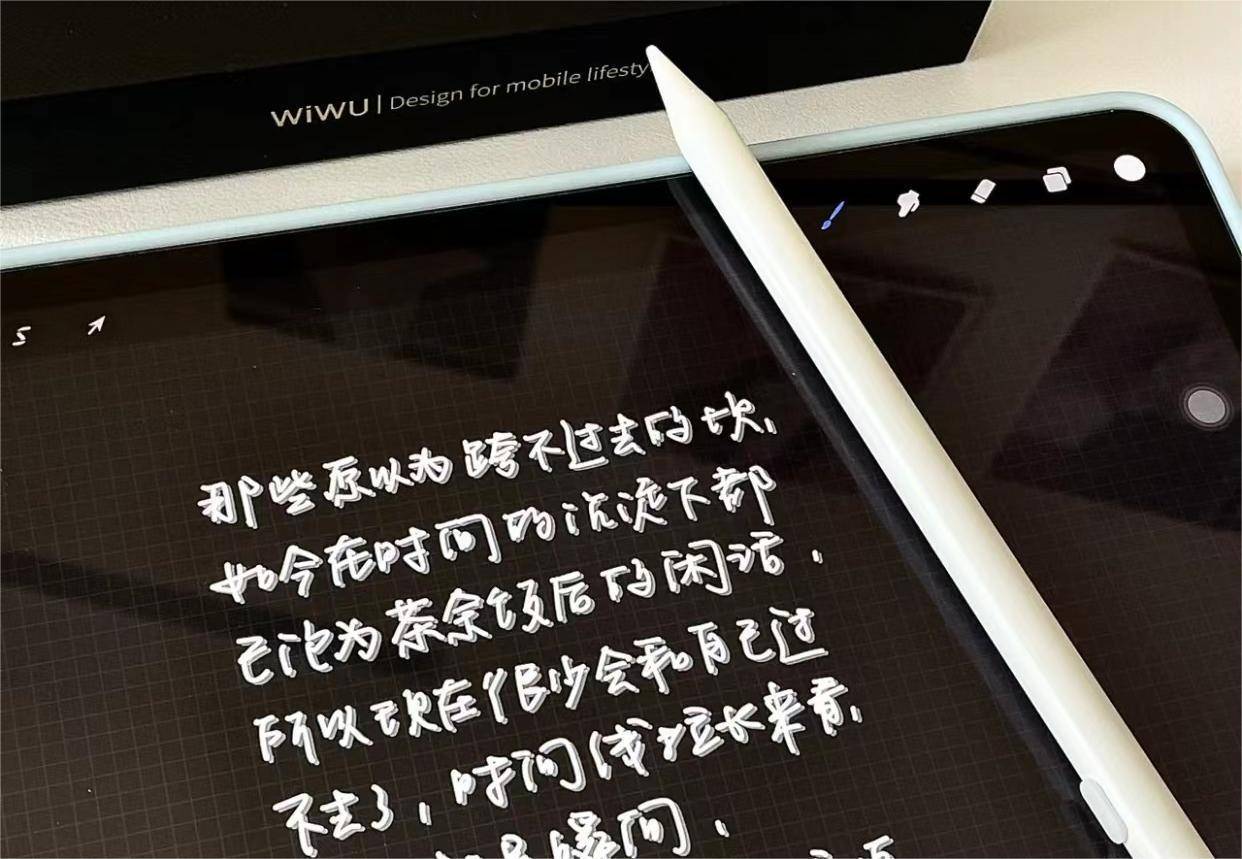 WiWU | Design for mobile lifesty
那些原以为跨不过去的坎,
如今在时间的沉淀下都
已沦为茶余饭后的闲话.
所以现在很少会和自己过
不去了,时间线拉长来看,
是瞬间,